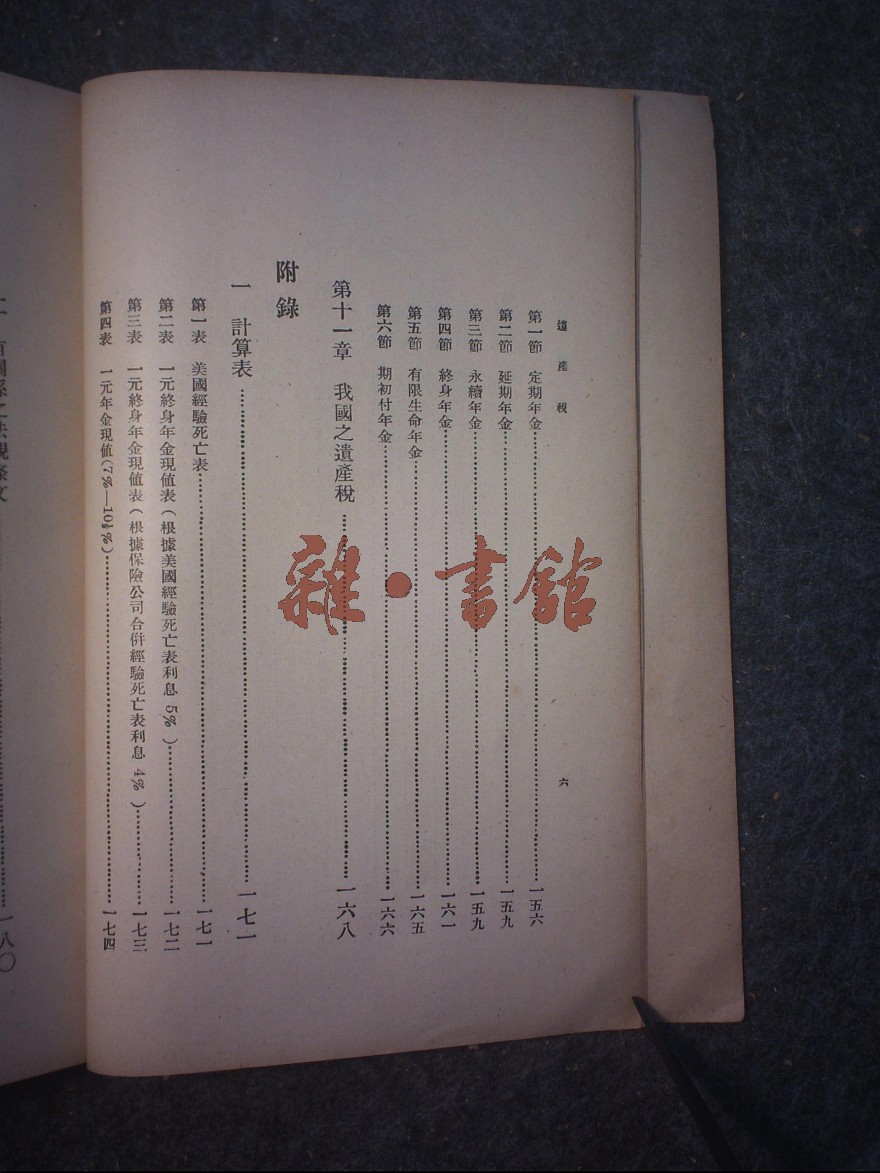 遺產稅
六
第一節　定期年金……一五六
第二節　延期年金……一五九
第三節　永續年金……一五九
第四節　終身年金……一六一
第五節　有限生命年金……一六五
第六節　期初付年金……一六六
第十一章　我國之遺產稅……一六八
附錄
一　計算表……一七一
第一表　美國經驗死亡表……一七一
第二表　一元終身年金現值表（根據美國經驗死亡表利息 5%）……一七二
第三表　一元終身年金現值表（根據保險公司合併經驗死亡表利息 4%）……一七三
第四表　一元年金現值(7%—10½%)……一七四
二　有關係之法規條文……一八〇
雜·書館